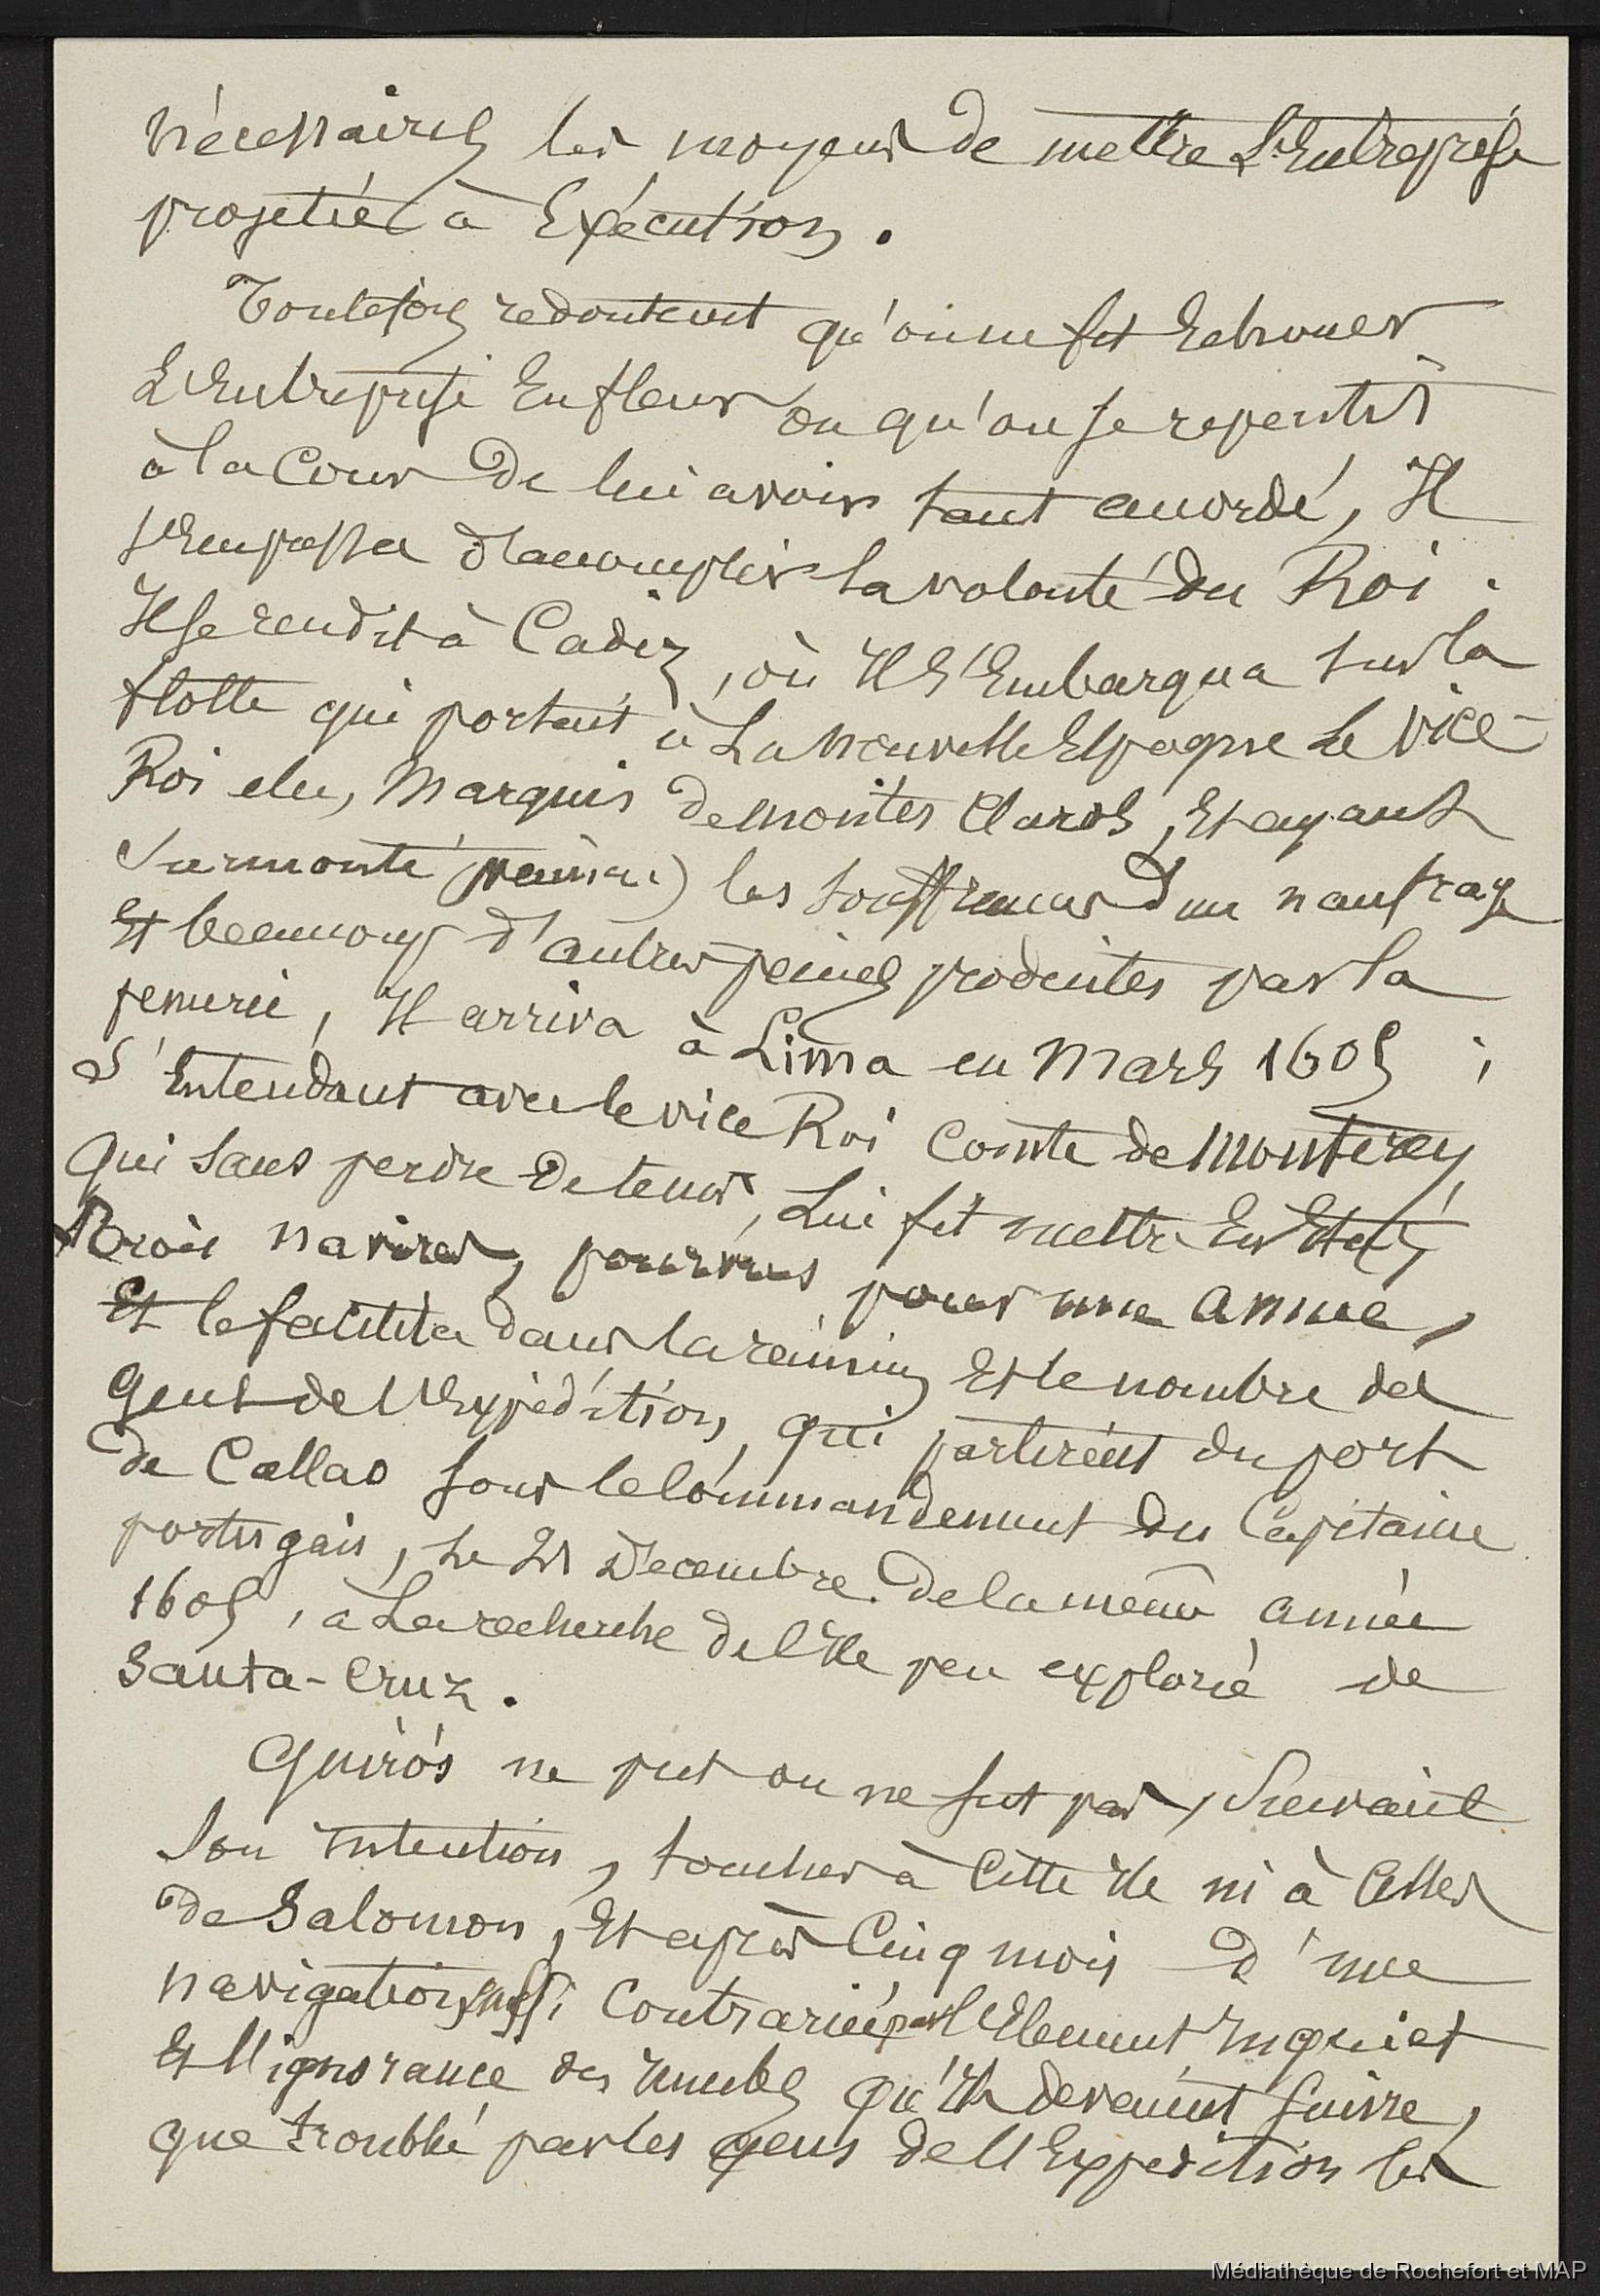 nécessaires les moyens de mettre L'Entreprise
projetée à Exécution.
Toutefois redoutant qu'on ne fit Echouer
L'Entreprise En fleur ou qu'on se repentit
à la Cour de lui avoir tant accordé, Il
s'Empressa d'accomplir la volonté du Roi.
Il se rendit à Cadiz, où Il s'Embarqua sur la
flotte qui portait à La Nouvelle Espagne Le Vice-
Roi elu, Marquis de Montes Claros, Et ayant
Surmonté les souffrances d'un naufrage
Et beaucoup d'autres peines produites par la
penurie, Il arriva à Lima en Mars 1605;
S'Entendant avec le vice Roi Comte de Monterey,
Qui sans perdre de tems, Lui fit mettre En Etat,
Trois navires, pourvus pour une année,
Et le facilita dans la réunion Et le nombre des
Gens de l'Expédition, qui partirent du port
de Callao sous le Commandement du Capitaine
portugais, Le 21 Décembre de la même année
1605, à La recherche de l'Ile peu explorée de
Santa-Cruz.
Quirós ne put ou ne sut pas, Suivant
Son Intention, toucher à Cette Ile ni à Celles
de Salomon, Et après Cinq mois d'une
navigation aussi Contrariée par l'Element Inquiet
Et l'ignorance des qu'Ils devaient Suivre,
que troublé par les gens de l'Expedition les
Médiathèque de Rochefort et MAP